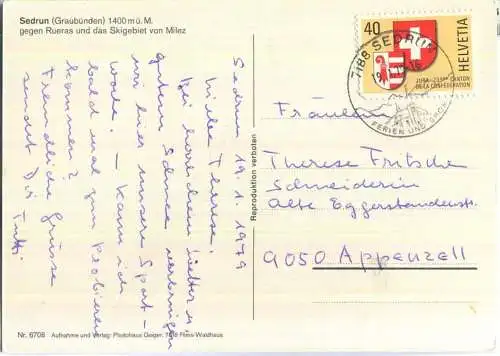 Sedrun (Graubünden) 1400 m ü. M.
gegen Rueras und das Skigebiet von Milez
Sedrun 19.1.1979
Liebe Therese.
Bei herrlichem Wetter u.
gutem Schnee verbringen
wir hier unsere Sport-
woche. – Kann ich
bald mal zum Probieren
kommen?
Freundliche Grüsse
sendet Dir
Reproduktion verboten
40
HELVETIA
JURA-23EME CANTON
DE LA CONFEDERATION
7188 SEDRUN
FERIEN UND SPORT
Fräulein
Therese Fritsche
Schneiderin
Alte Eggerstandenstr.
9050 Appenzell
Nr. 6708 Aufnahme und Verlag: Photohaus Geiger, 7018 Flims-Waldhaus